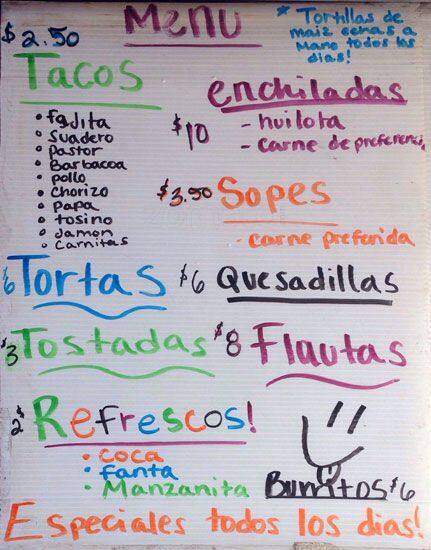 Menu
$2.50
* Tortillas de
maiz echas a
Mano todos los
dias!
Tacos
• fajita
• Suadero
• Pastor
• Barbacoa
• pollo
• Chorizo
• Papa
• tosino
• Jamon
• Carnitas
enchiladas
$10
- huilota
- carne de preferencia
$3.50 Sopes
- carne preferida
$6 Tortas
$6 Quesadillas
$3 Tostadas
$8 Flautas
2$ Refrescos!
• coca
• fanta
• Manzanita
Burritos $6
Especiales todos los dias!